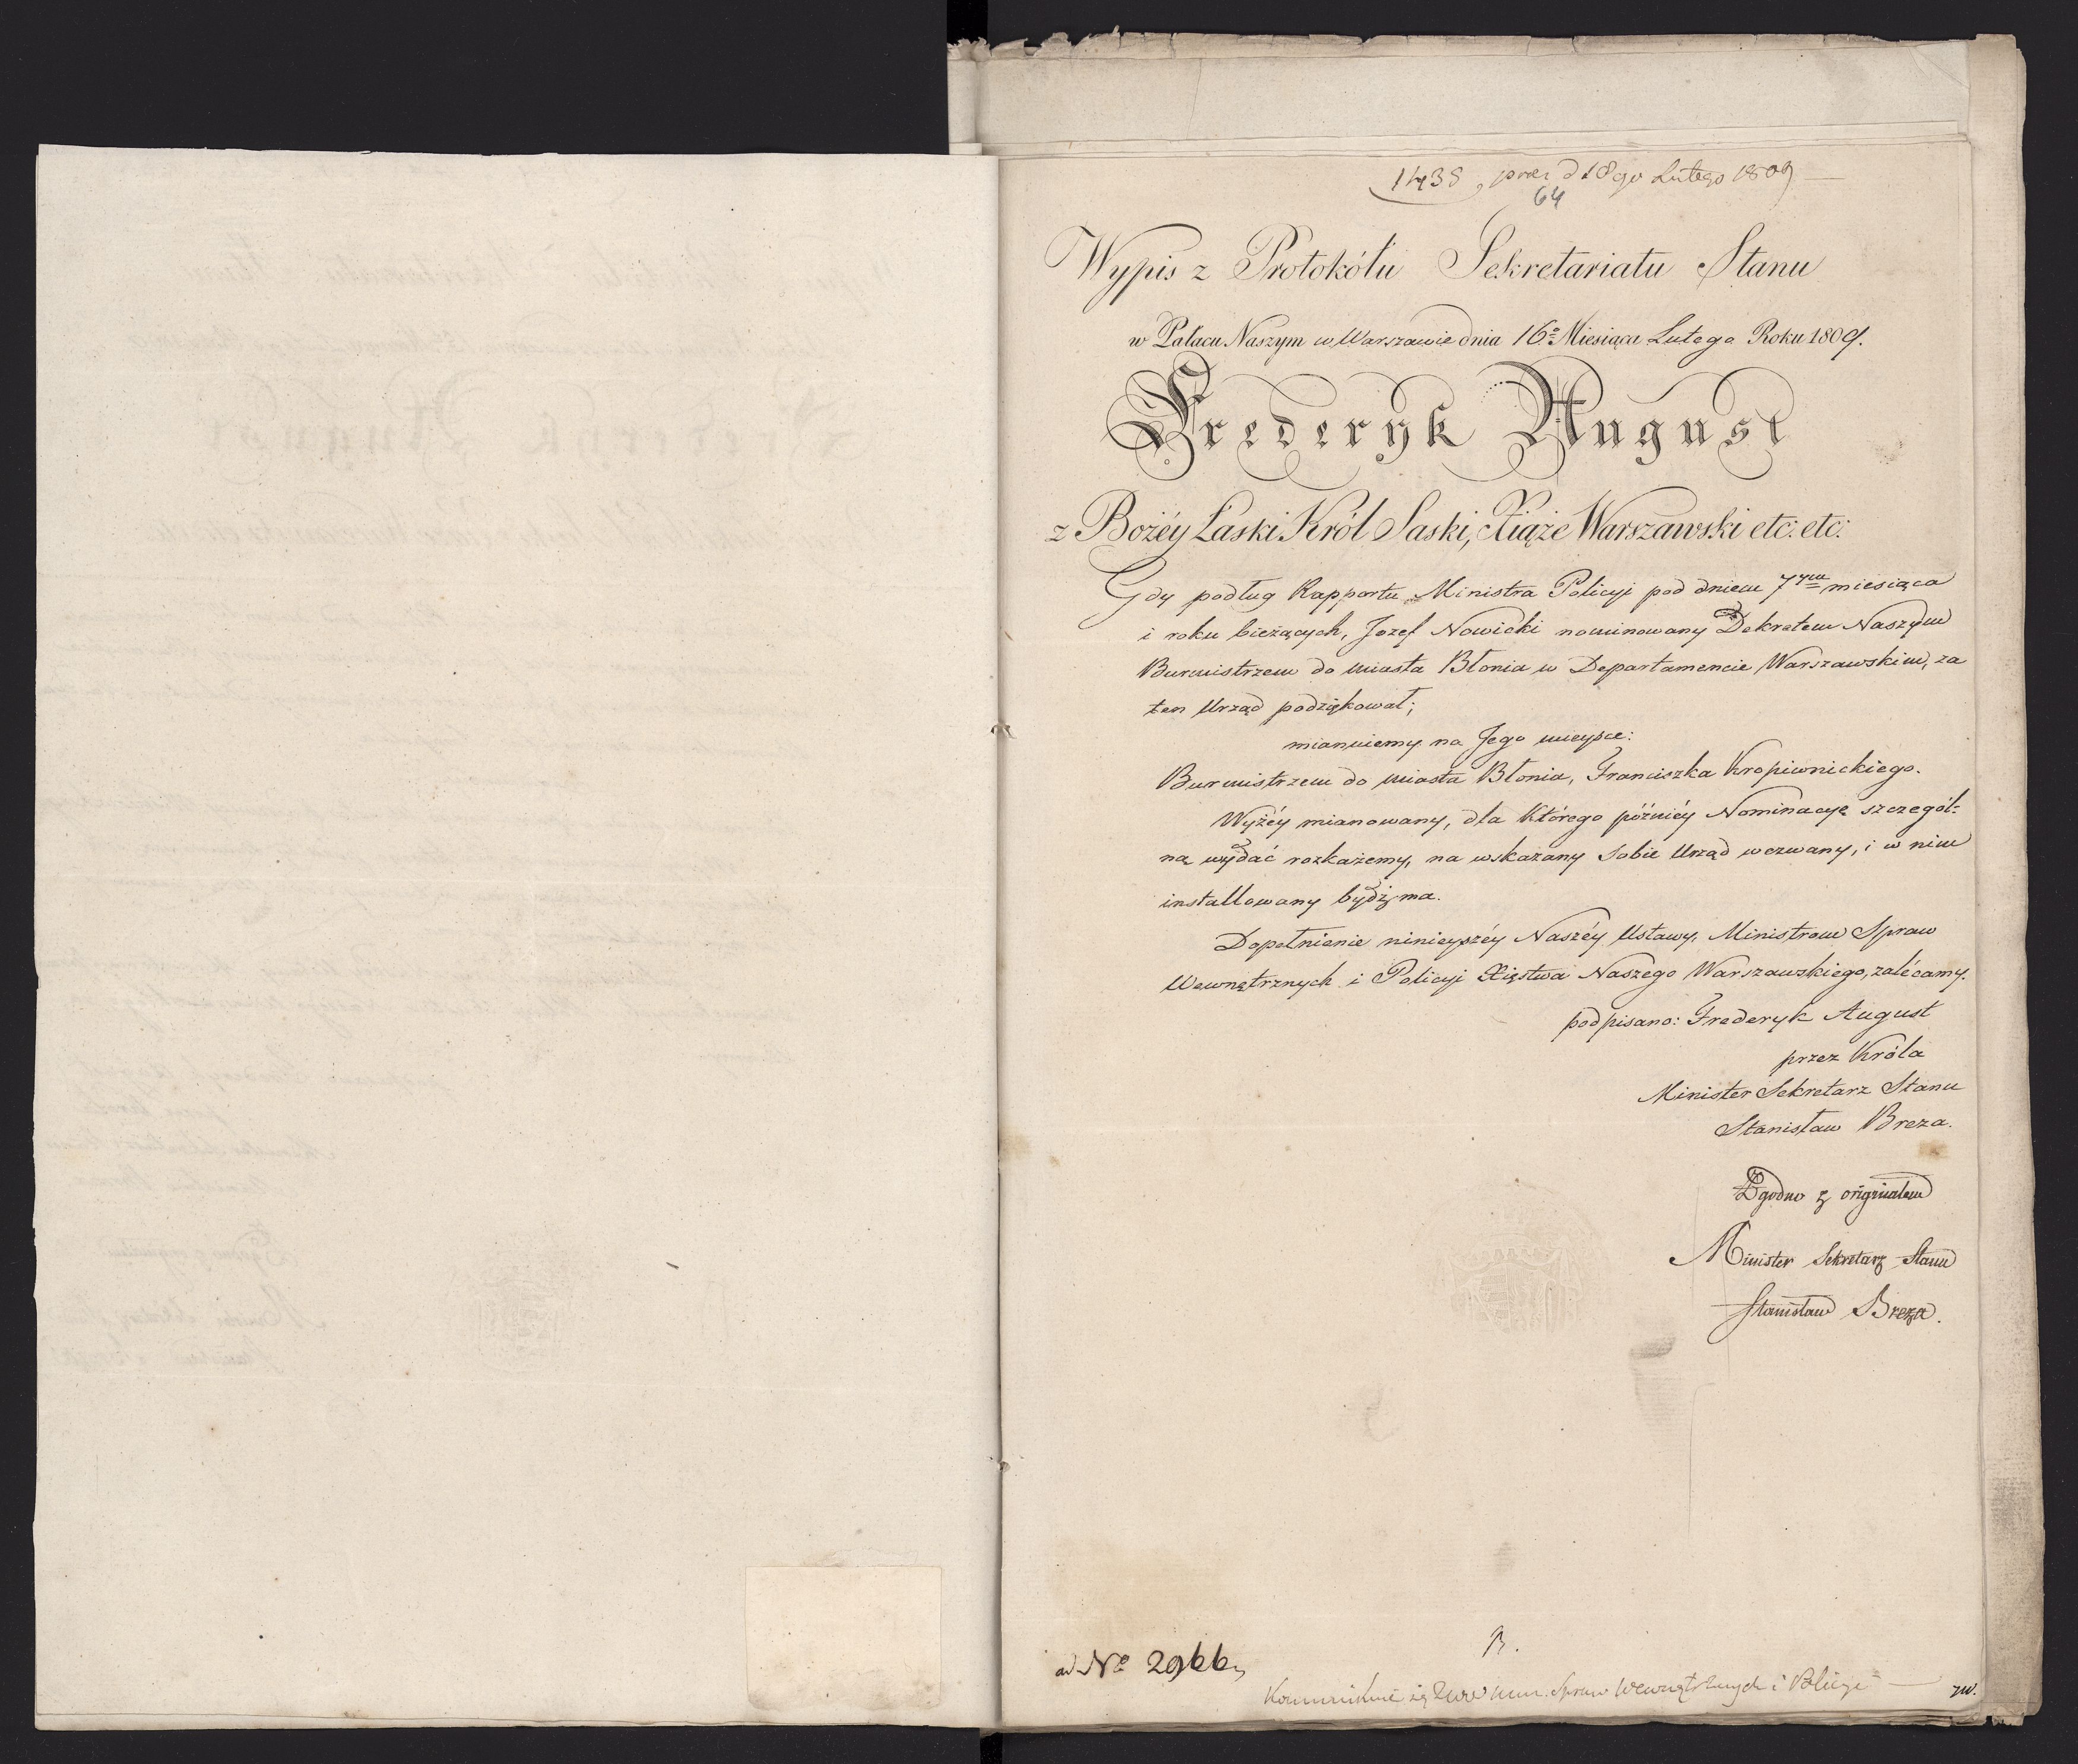 1438, prez d 18go Lutego 1809
64
Wypis z Protokółu Sekretariatu Stanu
w Pałacu Naszym w Warszawie dnia 16º Miesiąca Lutego Roku 1809.
Frederyk August
z Bożéy Łaski Król Saski, Xiąże Warszawski etc: etc:
Gdy podług Rapportu Ministra Policyi pod dniem 7ym miesiąca
i roku bieżących, Jozef Nowicki nominowany Dekretem Naszym
Burmistrzem do miasta Błonia w Departamencie Warszawskim, za
ten Urząd podziękował;
mianuiemy na Jego mieysce:
Burmistrzem do miasta Błonia, Franciszka Kropiwnickiego.
Wyżéy mianowany, dla którego późniéy Nominacyę szczegól-
ną wydać rozkażemy, na wskazany sobie Urząd wezwany, i w nim
installowany bydź ma.
Dopełnienie ninieyszéy Naszéy Ustawy, Ministrom Spraw
Wewnętrznych i Policyi Xięstwa Naszego Warszawskiego, zalécamy.
podpisano: Frederyk August
przez Króla
Minister Sekretarz Stanu
Stanisław Breza.
Zgodno z originałem
Minister Sekretarz Stanu
Stanisław Breza.
ad Nº 2966
Spraw Wewnętrznych i Policyi